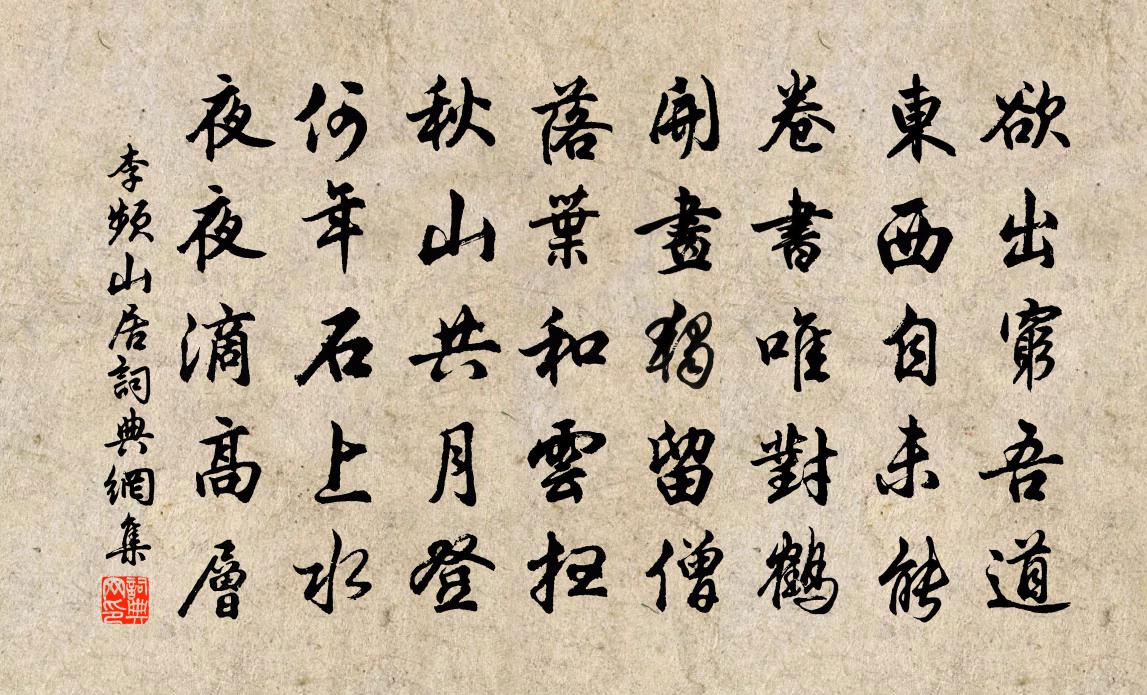 欲出窮吾道
東西自未能
卷書唯對鶴
開畫獨留僧
落葉和雲掃
秋山共月登
何年石上水
夜夜滴高層
李頻山居詞典網集
詞典網印